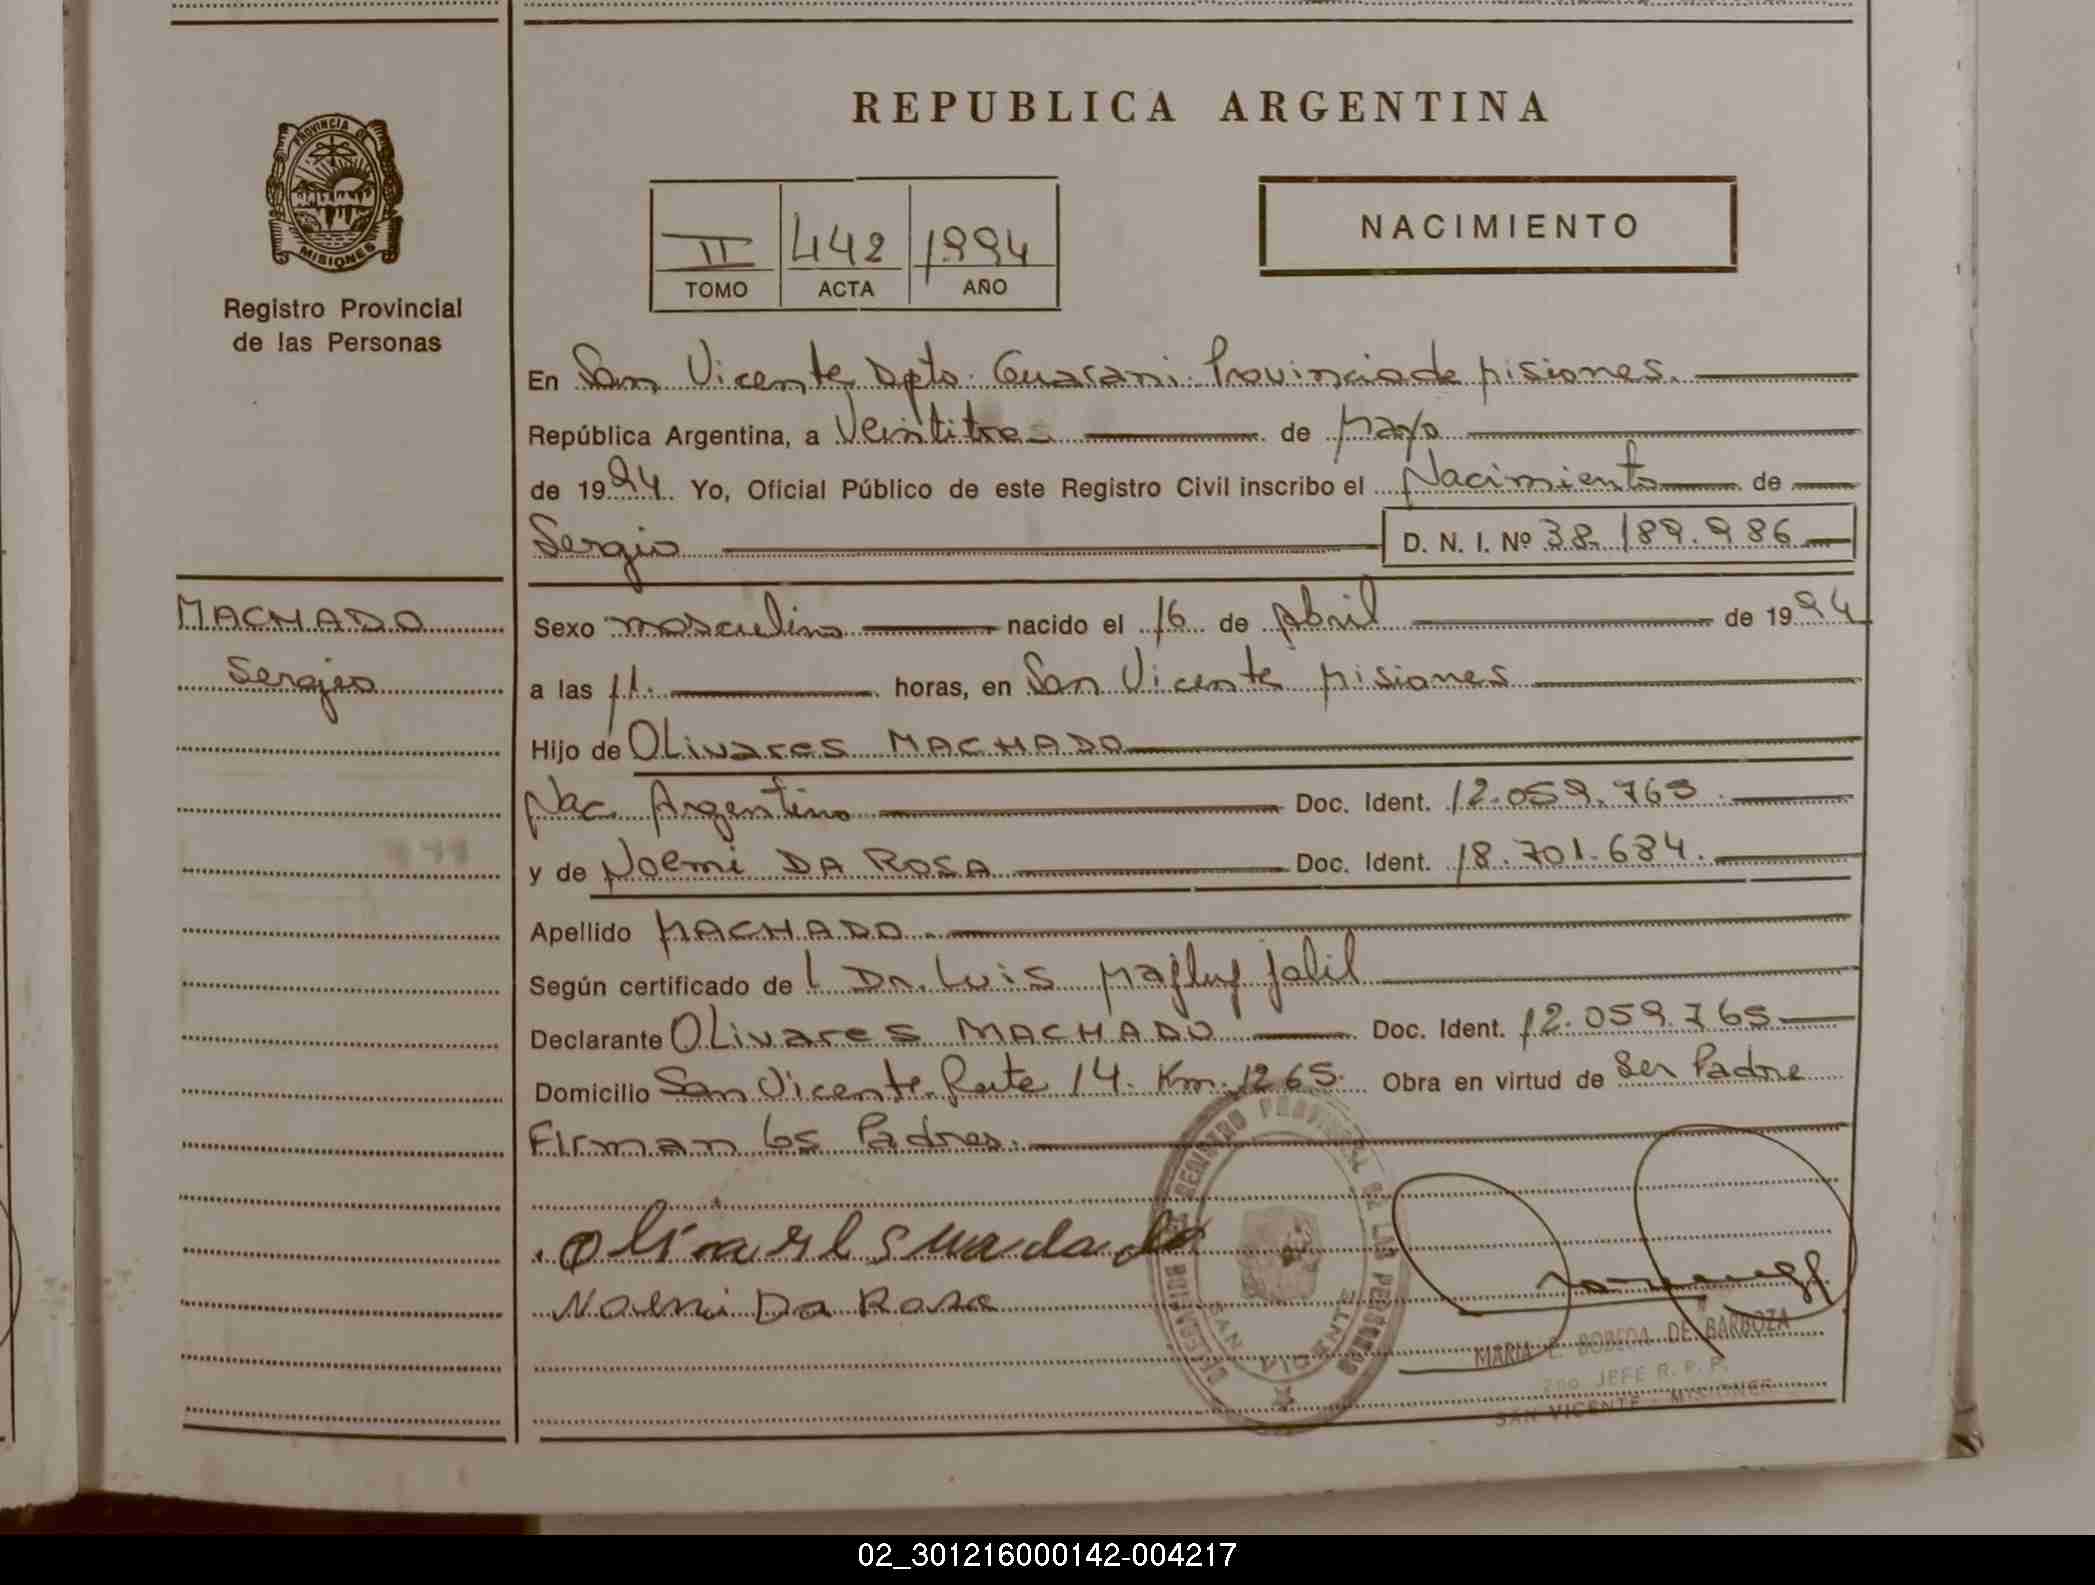 REPUBLICA ARGENTINA
PROVINCIA DE
MISIONES
Registro Provincial
de las Personas
NACIMIENTO
II 442 1994
TOMO ACTA AÑO
En San Vicente Dpto. Guarani Provincia de Misiones.
República Argentina, a Veintitres de Mayo
de 1994. Yo, Oficial Público de este Registro Civil inscribo el Nacimiento de
Sergio D. N. I. Nº 38.189.986
MACHADO
Sergio
Sexo masculino nacido el 16 de Abril de 1994
a las 11. horas, en San Vicente Misiones
Hijo de OLivares MACHADO
Nac. Argentino Doc. Ident. 12.059.765
y de Noemi DA ROSA Doc. Ident. 18.701.684.
Apellido MACHADO.
Según certificado de l Dr. Luis Jalil
Declarante OLivares MACHADO Doc. Ident. 12.059.765
Domicilio San Vicente Ruta 14. Km. 1265. Obra en virtud de Ser Padre
Firman los Padres.
olivares machado
Noemi Da Rosa
REGISTRO PROVINCIAL DE LAS PERSONAS
SAN VICENTE
MARIA E. DE BARBOZA
JEFE R. P. P.
SAN VICENTE - MISIONES
02_301216000142-004217